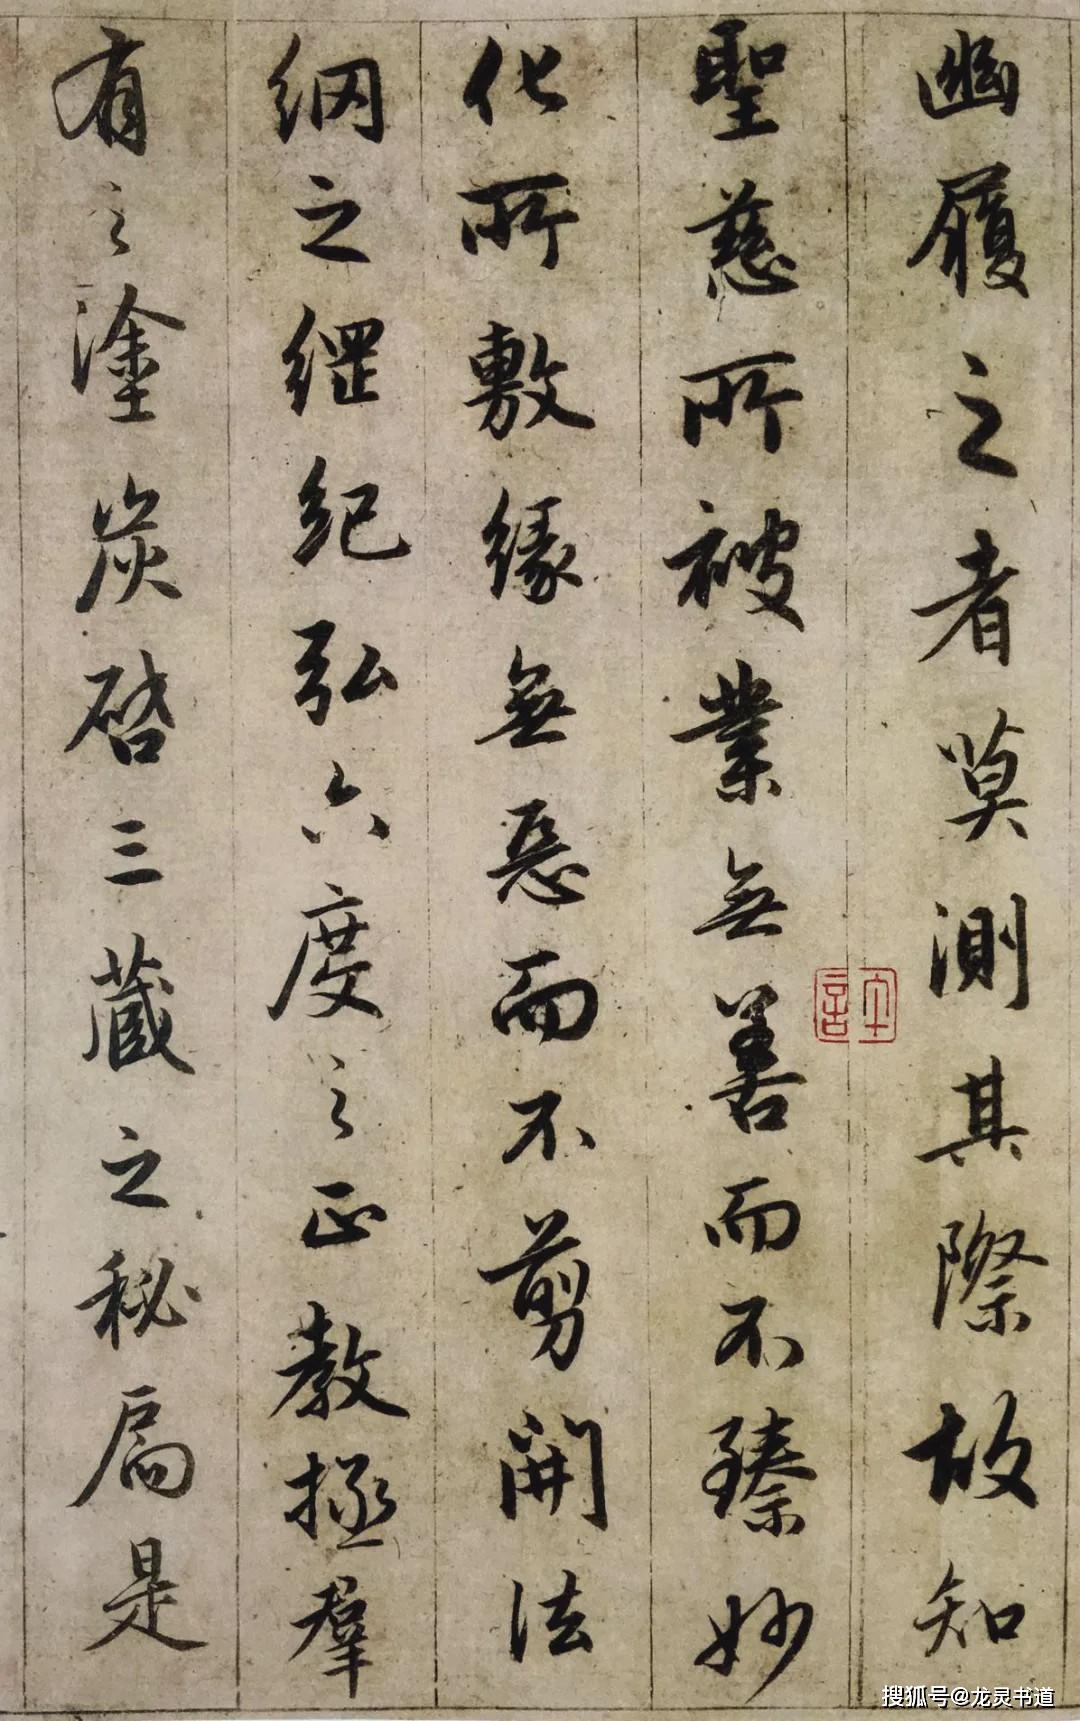 幽履之者莫測其際故知
聖慈所被業無善而不臻妙
化所敷緣無惡而不剪開法
綱之綱紀弘六度之正教拯羣
有之塗炭啓三藏之秘扃是
搜狐号@龙灵书道